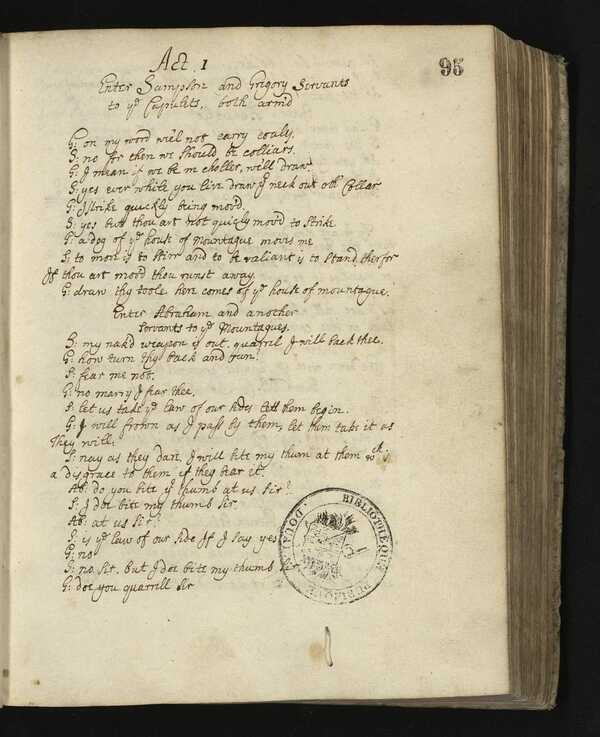 Act 1
95
Enter Sampson and Gregory Servants
to ye Capulets, both arm'd
G: on my word wéél not carry coals.
S: no for then we should be colliars.
G: I mean if we be in choller, we'll draw
S: yes ever while you live draw ye neck out oth Collar
G: I strike quickly being mov'd.
S: yes but thou art not quickly mov'd to strike
G: a dog of ye house of Mountague moves me
G: to move is to stirr and to be valiant is to stand, therfor
If thou art mov'd thou runst away.
G: draw thy toole here comes of ye house of mountague.
Enter Abraham and another
servants to ye Mountagues.
S: my nak'd weapon is out. quarril I will back thee.
G: how turn thy back and run?
S: fear me not.
G: no marry I fear thee.
S: let us take ye law of our sides lett them begin.
G: I will frown as I pass by them, let them take it as
They will.
S: nay as they dare, I will bite my thum at them wch is
a disgrace to them if they bear it.
Ab: do you bite yr thumb at us sir?
S: I doe bite my thumb sir
Ab: at us sir?
S: is ye law of our side If I say yes
G: no
S: no sir. but I doe bite my thumb sir
G: doe you quarrill sir
BIBLIOTHEQUE PUBLIQUE DOUAI